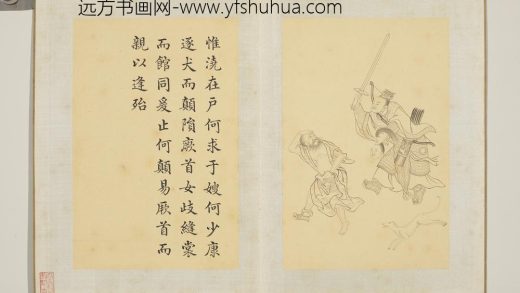 远方书画网-www.yfshuhua.com
惟澆在戶何求于嫂何少康
逐犬而顛隕厥首女歧縫裳
而館同爰止何顛易厥首而
親以逢殆